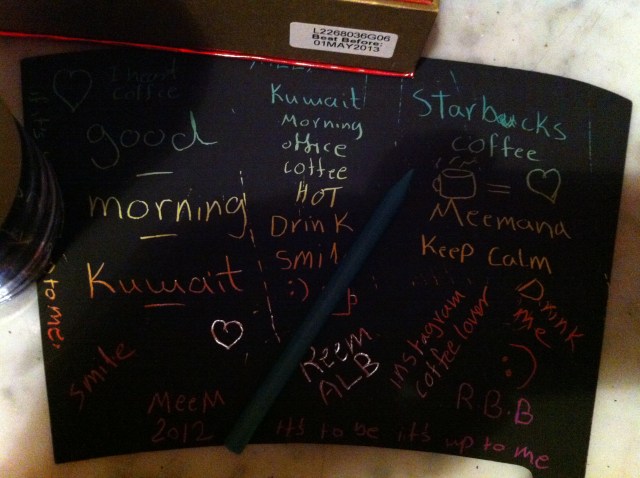 L2268036G06
Best Before:
01MAY2013
I heart
coffee
good
morning
Kuwait
smile
MeeM
2012
Kuwait
Morning
office
coffee
HOT
Drink
smile
:)
Reem
ALB
Starbucks
coffee
=
Meemana
Keep Calm
Drink
me
:)
instagram
coffee lover
R.B.B
it's to be it's up to me